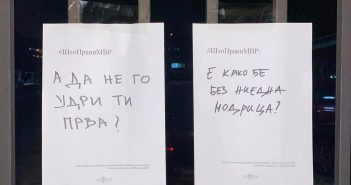 #ШтоПравиМВР:
А ДА НЕ ГО
УДРИ ТИ
ПРВА?
#ШтоПравиМВР:
Е КАКО БЕ
БЕЗ НИЕДНА
МОДРИЦА?